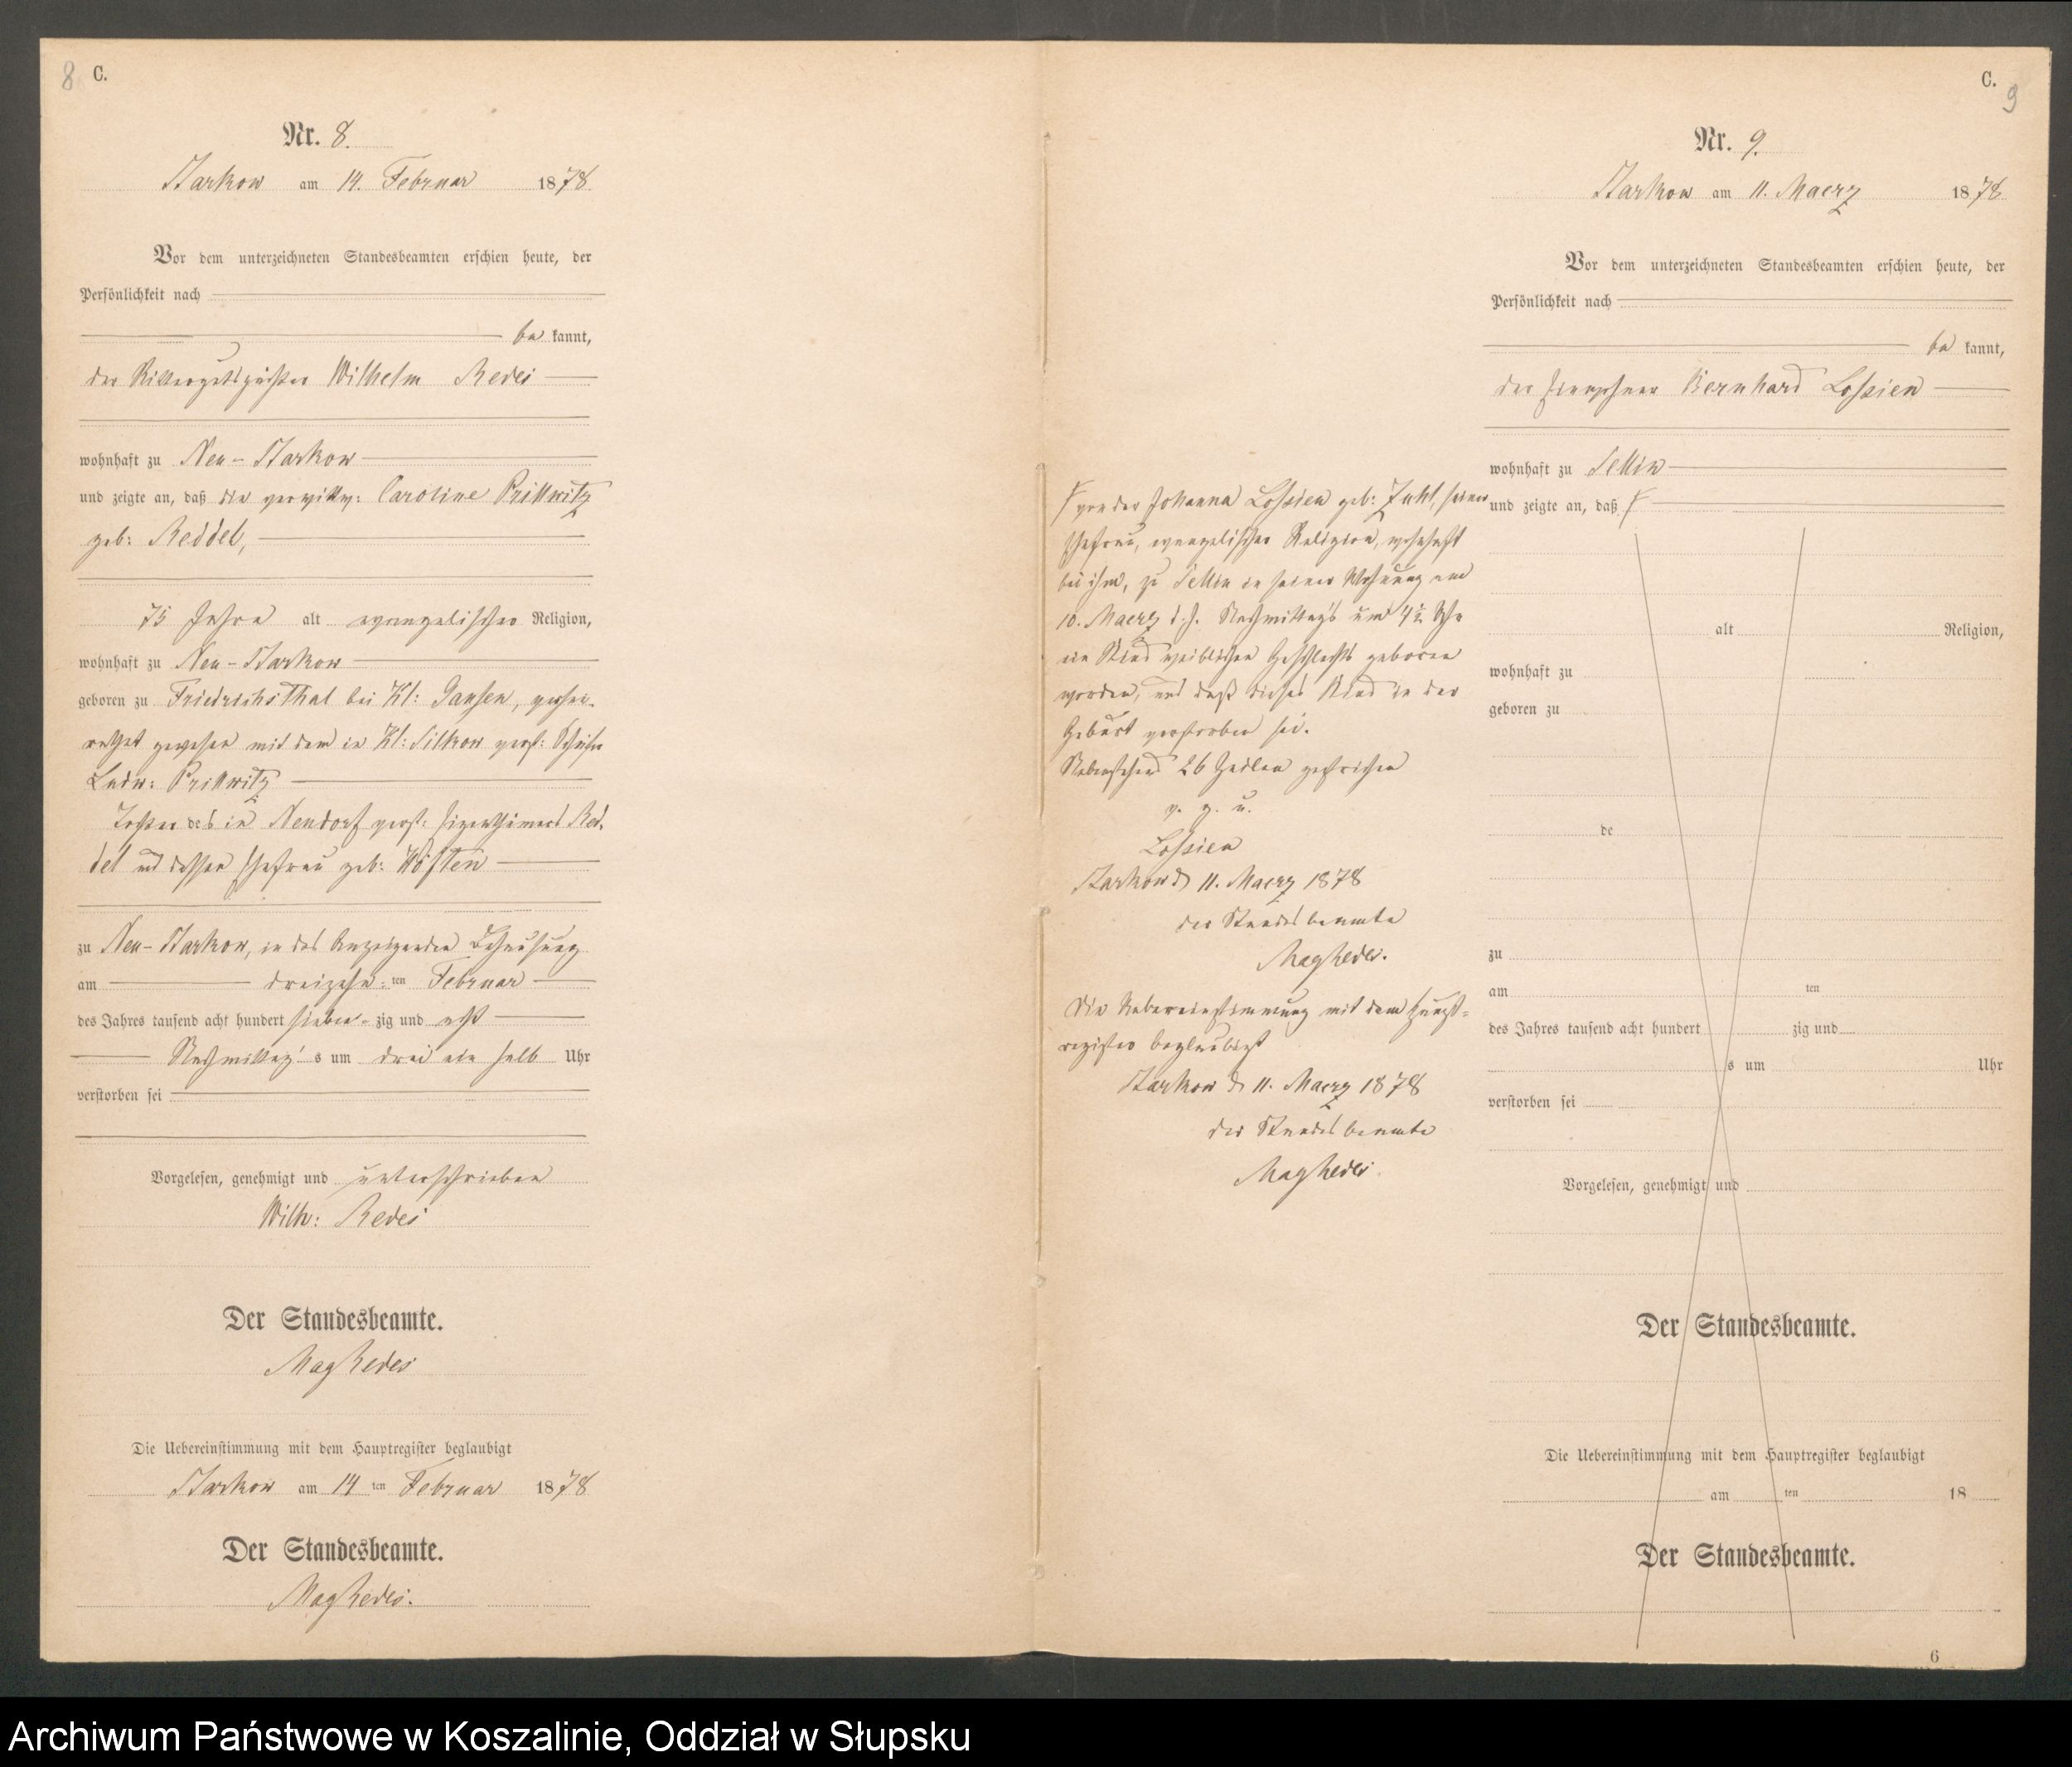 8 C.
Nr. 8.
Starkow am 14. Februar 1878
Vor dem unterzeichneten Standesbeamten erschien heute, der
Persönlichkeit nach
be kannt,
der Rittergutspächter Wilhelm Redei
wohnhaft zu Neu-Starkow
und zeigte an, daß die verwittw: Caroline Prillwitz
geb: Reddel,
75 Jahre alt evangelischer Religion,
wohnhaft zu Neu-Starkow
geboren zu Friedrichsthal bei Kl: Gansen, verhei-
rathet gewesen mit dem in Kl: Silkow verst: Schäfer
Ludw: Prillwitz
Tochter des in Neudorf verst: Eigenthümers Red-
del und dessen Ehefrau geb:
zu Neu-Starkow, in des Anzeigenden Behausung
am dreizehn ten Februar
des Jahres tausend acht hundert sieben- zig und acht
Nachmittag's um drei ein halb Uhr
verstorben sei
Vorgelesen, genehmigt und unterschrieben
Wilh: Redei
Der Standesbeamte.
Die Uebereinstimmung mit dem Hauptregister beglaubigt
Starkow am 14 ten Februar 1878
Der Standesbeamte.
C. 9
Nr. 9.
Starkow am 11. Maerz 1878
Vor dem unterzeichneten Standesbeamten erschien heute, der
Persönlichkeit nach
be kannt,
der Einwohner Bernhard Lossien
wohnhaft zu Sellin
und zeigte an, daß
von der Johanna Lossien geb: seiner
Ehefrau, evangelischer Religion, wohnhaft
bei ihm, zu Sellin in seiner Wohnung am
10. Maerz d. J. Nachmittag's um 4½ Uhr
ein Kind weiblichen Geschlechts geboren
worden, und daß dieses Kind in der
Geburt verstorben sei.
Nebenstehend 26 Zeilen gestrichen
v. g. u.
Lossien
Starkow d 11. Maerz 1878
der Standesbeamte
Die Uebereinstimmung mit dem Haupt-
register beglaubigt
Starkow d 11. Maerz 1878
der Standesbeamte
alt Religion,
wohnhaft zu
geboren zu
de
zu
am ten
des Jahres tausend acht hundert zig und
s um Uhr
verstorben sei
Vorgelesen, genehmigt und
Der Standesbeamte.
Die Uebereinstimmung mit dem Hauptregister beglaubigt
am ten 18
Der Standesbeamte.
6
Archiwum Państwowe w Koszalinie, Oddział w Słupsku